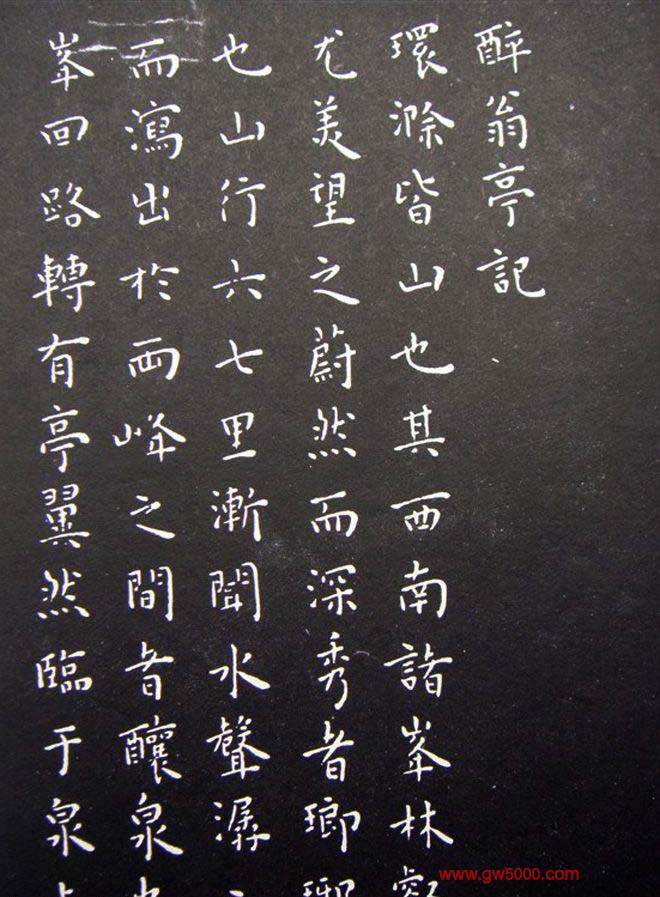 醉翁亭記
環滁皆山也其西南諸峯林壑
尤美望之蔚然而深秀者瑯琊
也山行六七里漸聞水聲潺
而瀉出於两峰之間者釀泉也
峯回路轉有亭翼然臨于泉上
www.gw5000.com